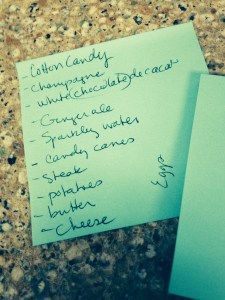 - Cotton Candy
- champagne
- white (chocolate) decacat
- Gingerale
- Sparkling water
- candy canes
- Steak
- potatoes
- butter
- Cheese
Eggs